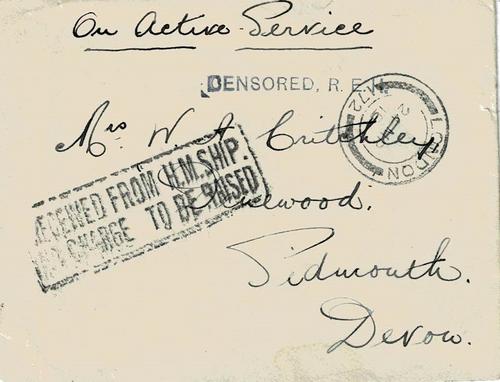 On Active Service
CENSORED, R. E. H.
LONDON
Mrs W A Critchley
RECEIVED FROM H.M. SHIP.
NO CHARGE TO BE RAISED
Sidmouth.
Devon.